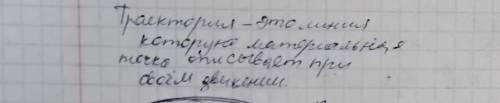 Траектория - это линия
которую материальная
точка описывает при
своём движении.